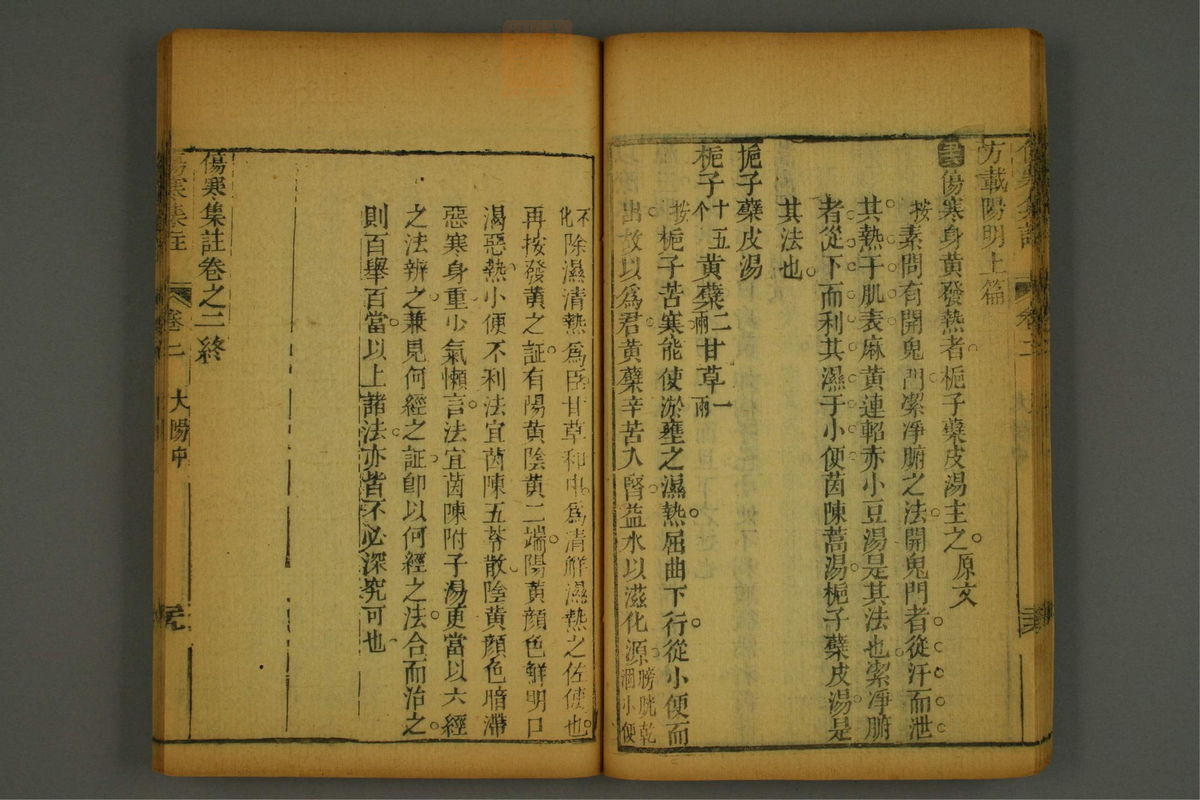 方載陽明上篇
傷寒身黃發熱者梔子蘗皮湯主之原文
按素問有開鬼門潔淨腑之法開鬼門者從汗而泄
其熱于肌表麻黃連軺赤小豆湯是其法也潔淨腑
者從下而利其濕于小便茵陳蒿湯梔子蘗皮湯是
其法也
梔子蘗皮湯
梔子十五个黃蘗二兩甘草一兩
按梔子苦寒能使淤壅之濕熱屈曲下行從小便而
出故以爲君黃蘗辛苦入腎益水以滋化源膀胱乾涸小便
不化除濕清熱爲臣甘草和中爲清解濕熱之佐使也
再按發黃之証有陽黃陰黃二端陽黃顔色鮮明口
渴惡熱小便不利法宜茵陳五苓散陰黃顔色暗滯
惡寒身重少氣懶言法宜茵陳附子湯更當以六經
之法辨之兼見何經之証卽以何經之法合而治之
則百舉百當以上諸法亦皆不必深究可也
傷寒集註卷之二終
傷寒集註 卷二 太陽中